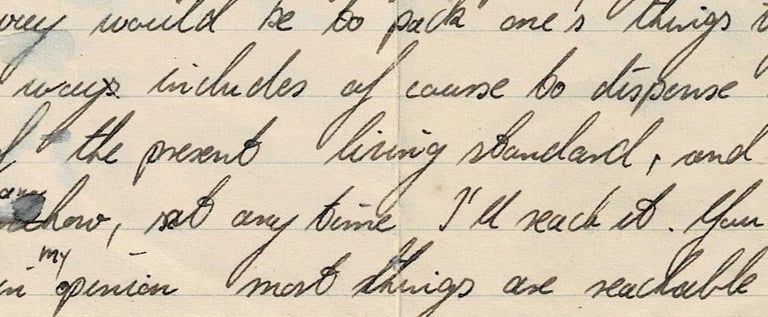 would be to pack one's things
ways includes of course to dispense
the present living standard, and
anyhow, at any time I'll reach it. You
in my opinion most things are reachable